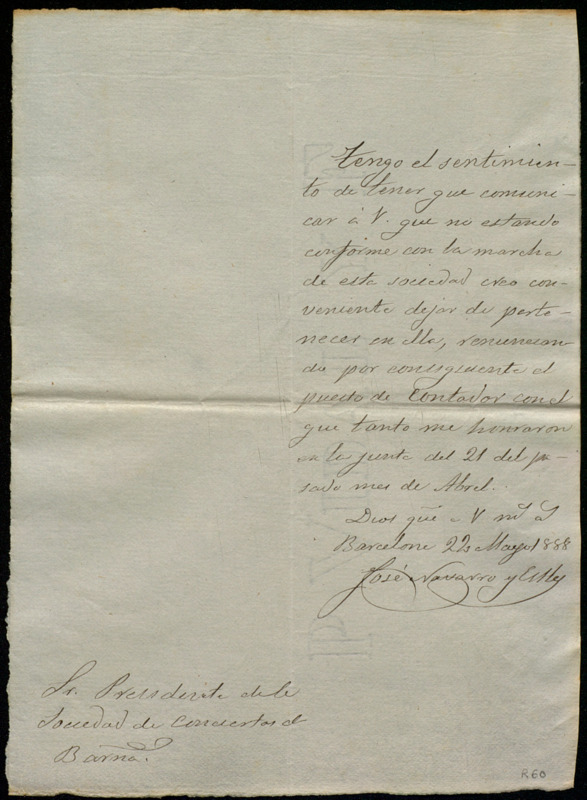 Tengo el sentimien-
to de tener que comuni-
car á V. que no estando
conforme con la marcha
de esta sociedad creo con-
veniente dejar de perte-
necer en ella, renuncian-
do por consiguiente el
puesto de Contador con el
que tanto me honraron
en la junta del 21 del pa-
sado mes de Abril.
Dios gũe a V mˢ aˢ
Barcelona 22 Mayo 1888
José Navarro y
Sr. Presidente de la
Sociedad de Conciertos de
Barña.
R60